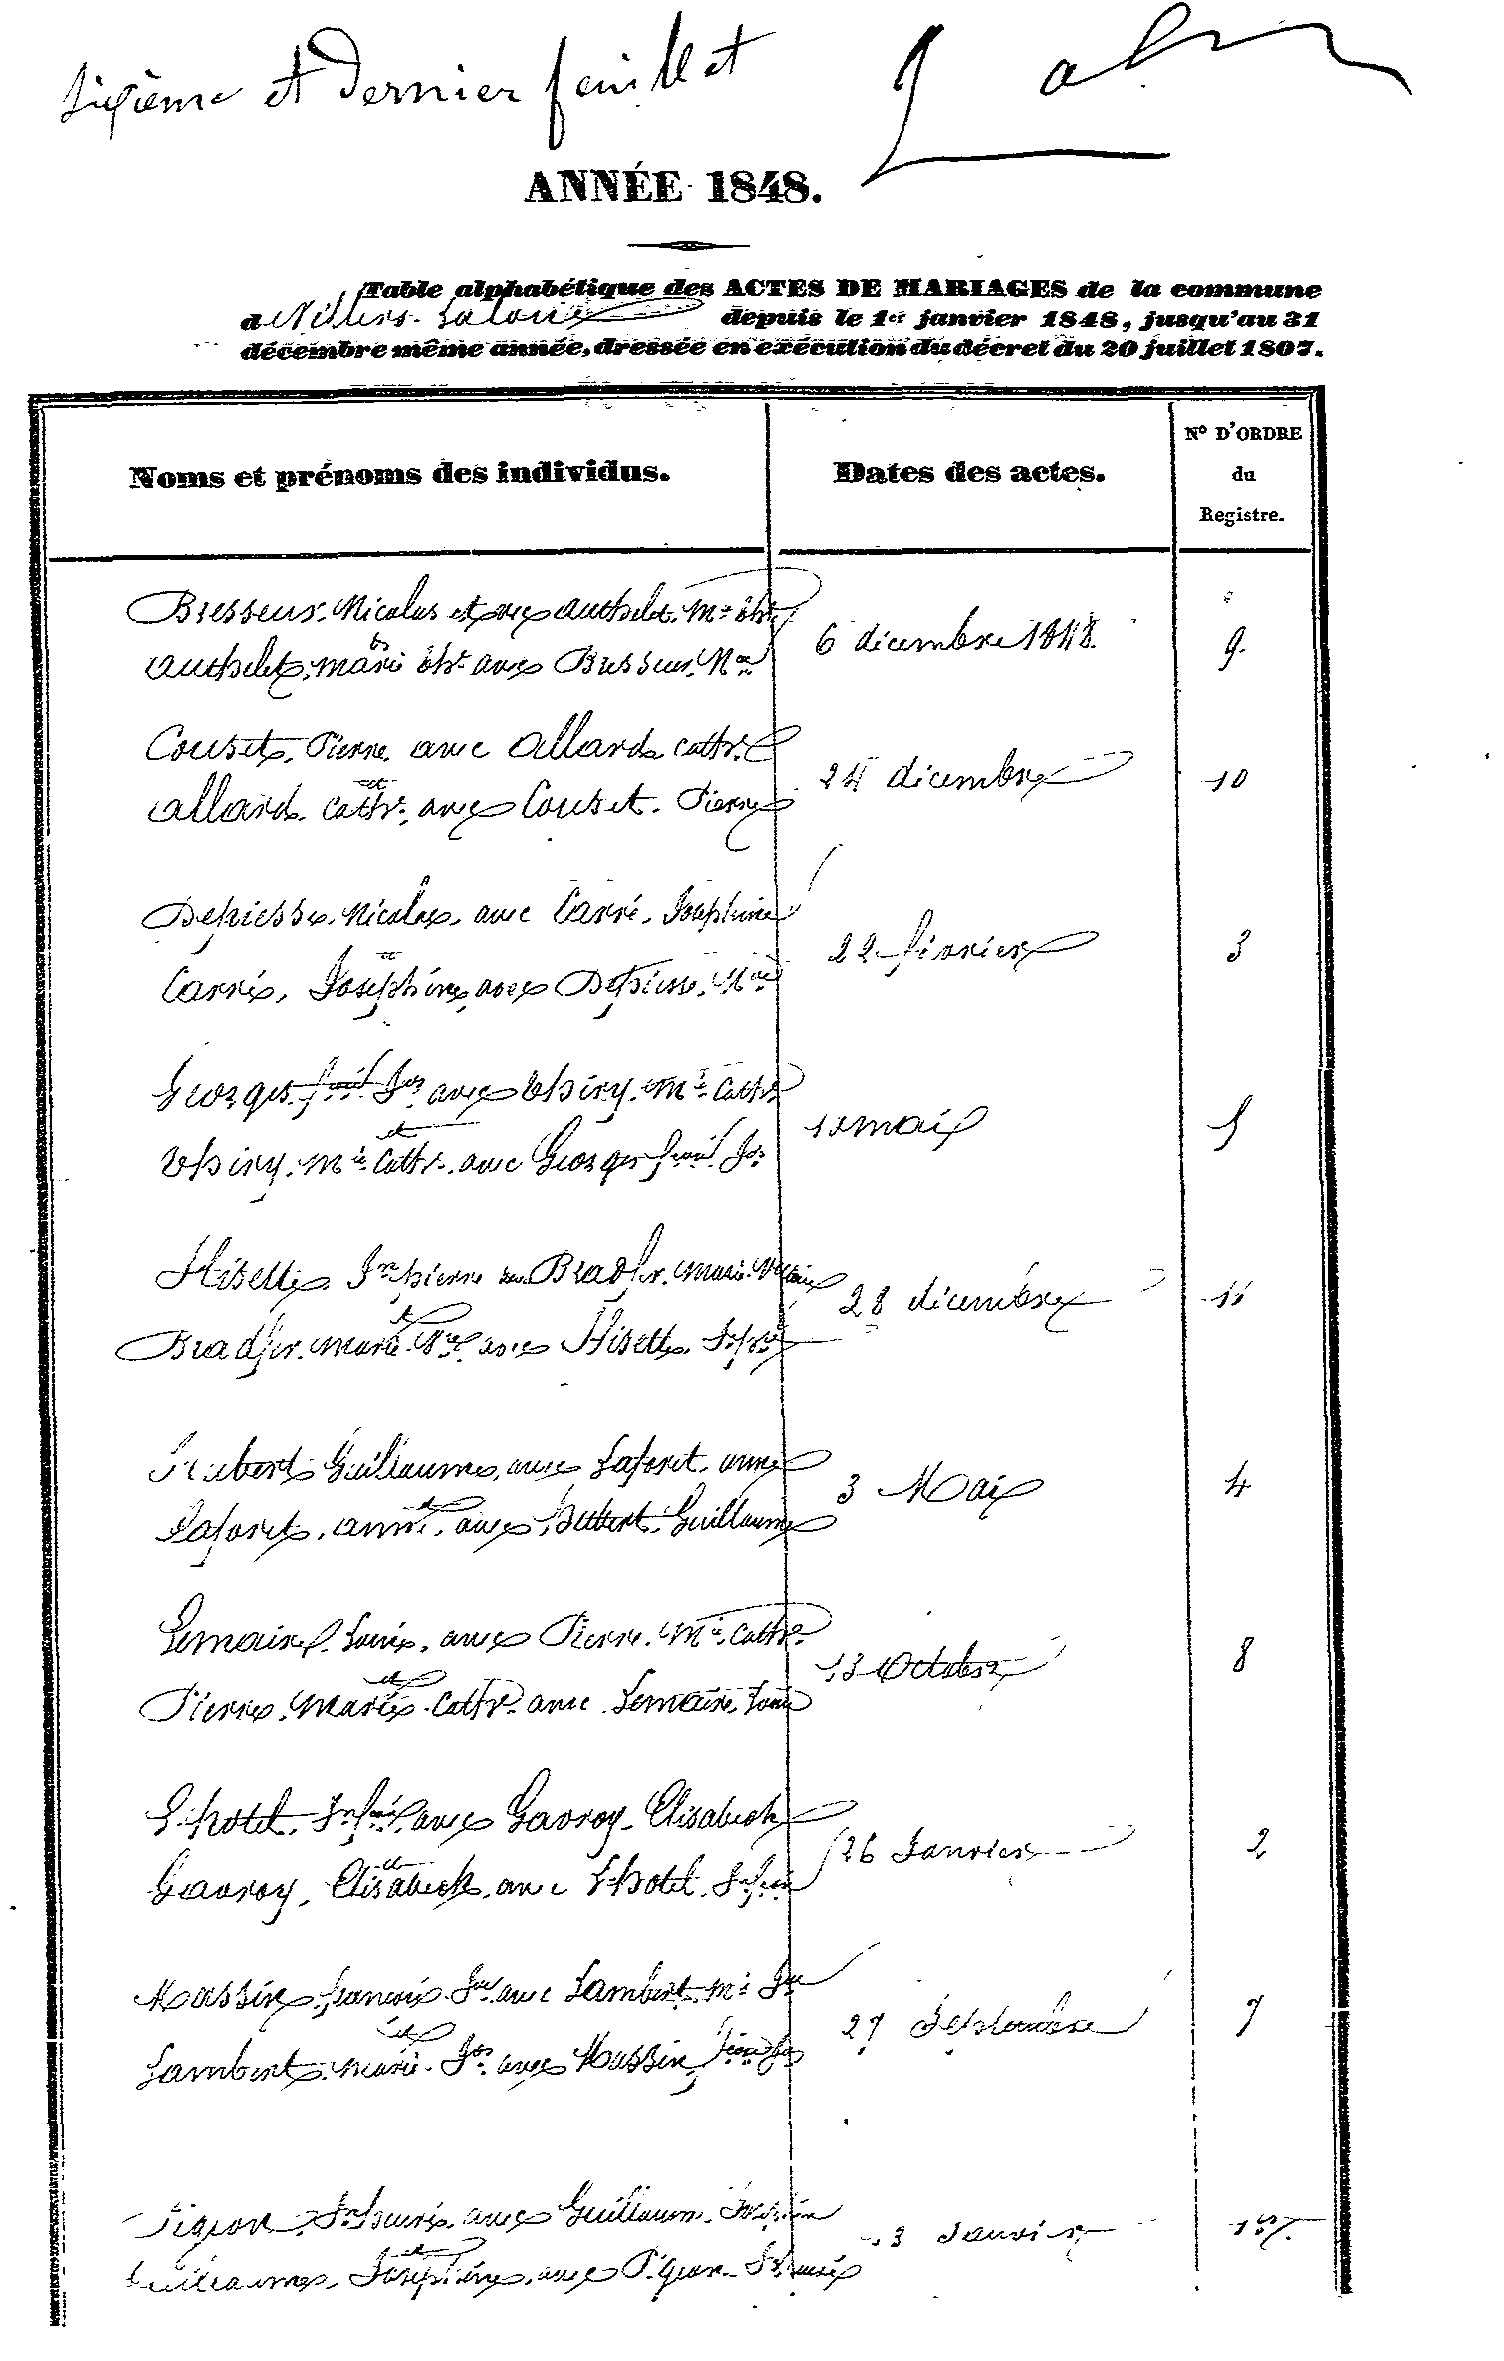 sixième et dernier feuillet
ANNÉE 1848.
Table alphabétique des ACTES DE MARIAGES de la commune
d Villers-Laloue depuis le 1er janvier 1848, jusqu'au 31
décembre même année, dressée en exécution du décret du 20 juillet 1807.
Noms et prénoms des individus.
Dates des actes.
N° D'ORDRE
du
Registre.
Bresseur, Nicolas avec Authelet, Mie
et
Authelet, marie avec Bresseur, Nas
6 décembre 1848.
9.
Couset, Pierre, avec Allard Cathe
et
Allard, Cathe, avec Couset, Pierre
24 décembre
10
Depiesse, Nicolas, avec Carré, Joséphine
et
Carré, Joséphine, avec Depiesse, Nas
22 février
3
Georges Jos avec Thiry, Mie Cathe
et
Thiry, Mie Cathe, avec Georges Jos
10 mai
5
Hisette, Jn pierre avec Bradfer, Marie
et
Bradfer, Marie avec Hisette, Jn pre
28 décembre
11
Hubert Guillaume, avec Laforet, anne
et
Laforet, anne, avec Hubert, Guillaume
3 Mai
4
Lemaire, Louis, avec Pierre, Mie Cathe
et
Pierre, Marie Cathe avec Lemaire, Louis
13 Octobre
8
Lhotel, avec Gavroy, Elisabeth
et
Gavroy, Elisabeth, avec Lhotel
26 Janvier
2
Massin, françois Jos avec Lambert, Mie Jos
et
Lambert, Marie Jos avec Massin, Jos
27 Septembre
7
Pigeon, Jn Louis, avec Guillaume, Joséphine
et
Guillaume, Joséphine, avec Pigeon, Jn Louis
3 Janvier
1er